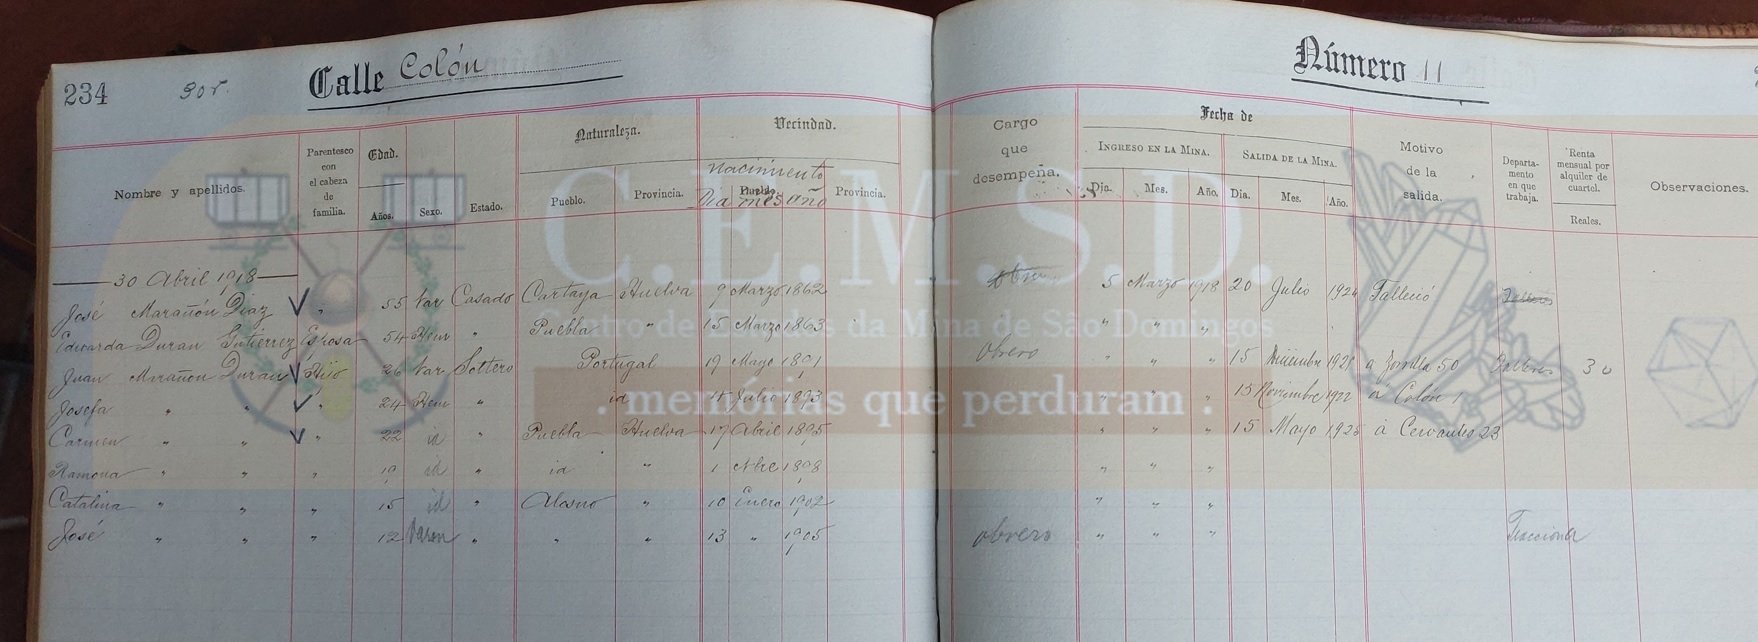 234 30r. Calle Colón Número 11
Nombre y apellidos. Parentesco con el cabeza de familia. Edad. Años. Sexo. Estado. Naturaleza. Pueblo. Provincia. Vecindad. nacimiento Pueblo. Dia mes año Provincia. Cargo que desempeña. Fecha de INGRESO EN LA MINA. Dia. Mes. Año. SALIDA DE LA MINA. Dia. Mes. Año. Motivo de la salida. Departamento en que trabaja. Renta mensual por alquiler de cuartel. Reales. Observaciones.
30 Abril 1918
José Marañón Diaz " 55 Var Casado Cartaya Huelva 9 Marzo 1862 5 Marzo 1918 20 Julio 1924 Falleció Talleres
Eduarda Duran Gutierrez Esposa 54 Hem " Puebla " 15 Marzo 1863 " " "
Juan Marañon Duran Hijo 26 Var Soltero Portugal 19 Mayo 1891 obrero " " " 15 Diciembre 1921 a Zorrilla 50 Talleres 30
Josefa " " " 24 Hem " id Julio 1893 " " " 15 Noviembre 1922 a Colón 1
Carmen " " " 22 id " Puebla Huelva 17 Abril 1895 " " " 15 Mayo 1925 a Cervantes 23
Ramona " " " 19 id " id " 1 Nbre 1898 " " "
Catalina " " " 15 id " Alosno " 10 Enero 1902 " " "
José " " " 12 Varon " " " 13 " 1905 obrero " " " Traccion
C.E.M.S.D.
Centro de Estudos da Mina de São Domingos
. memórias que perduram .